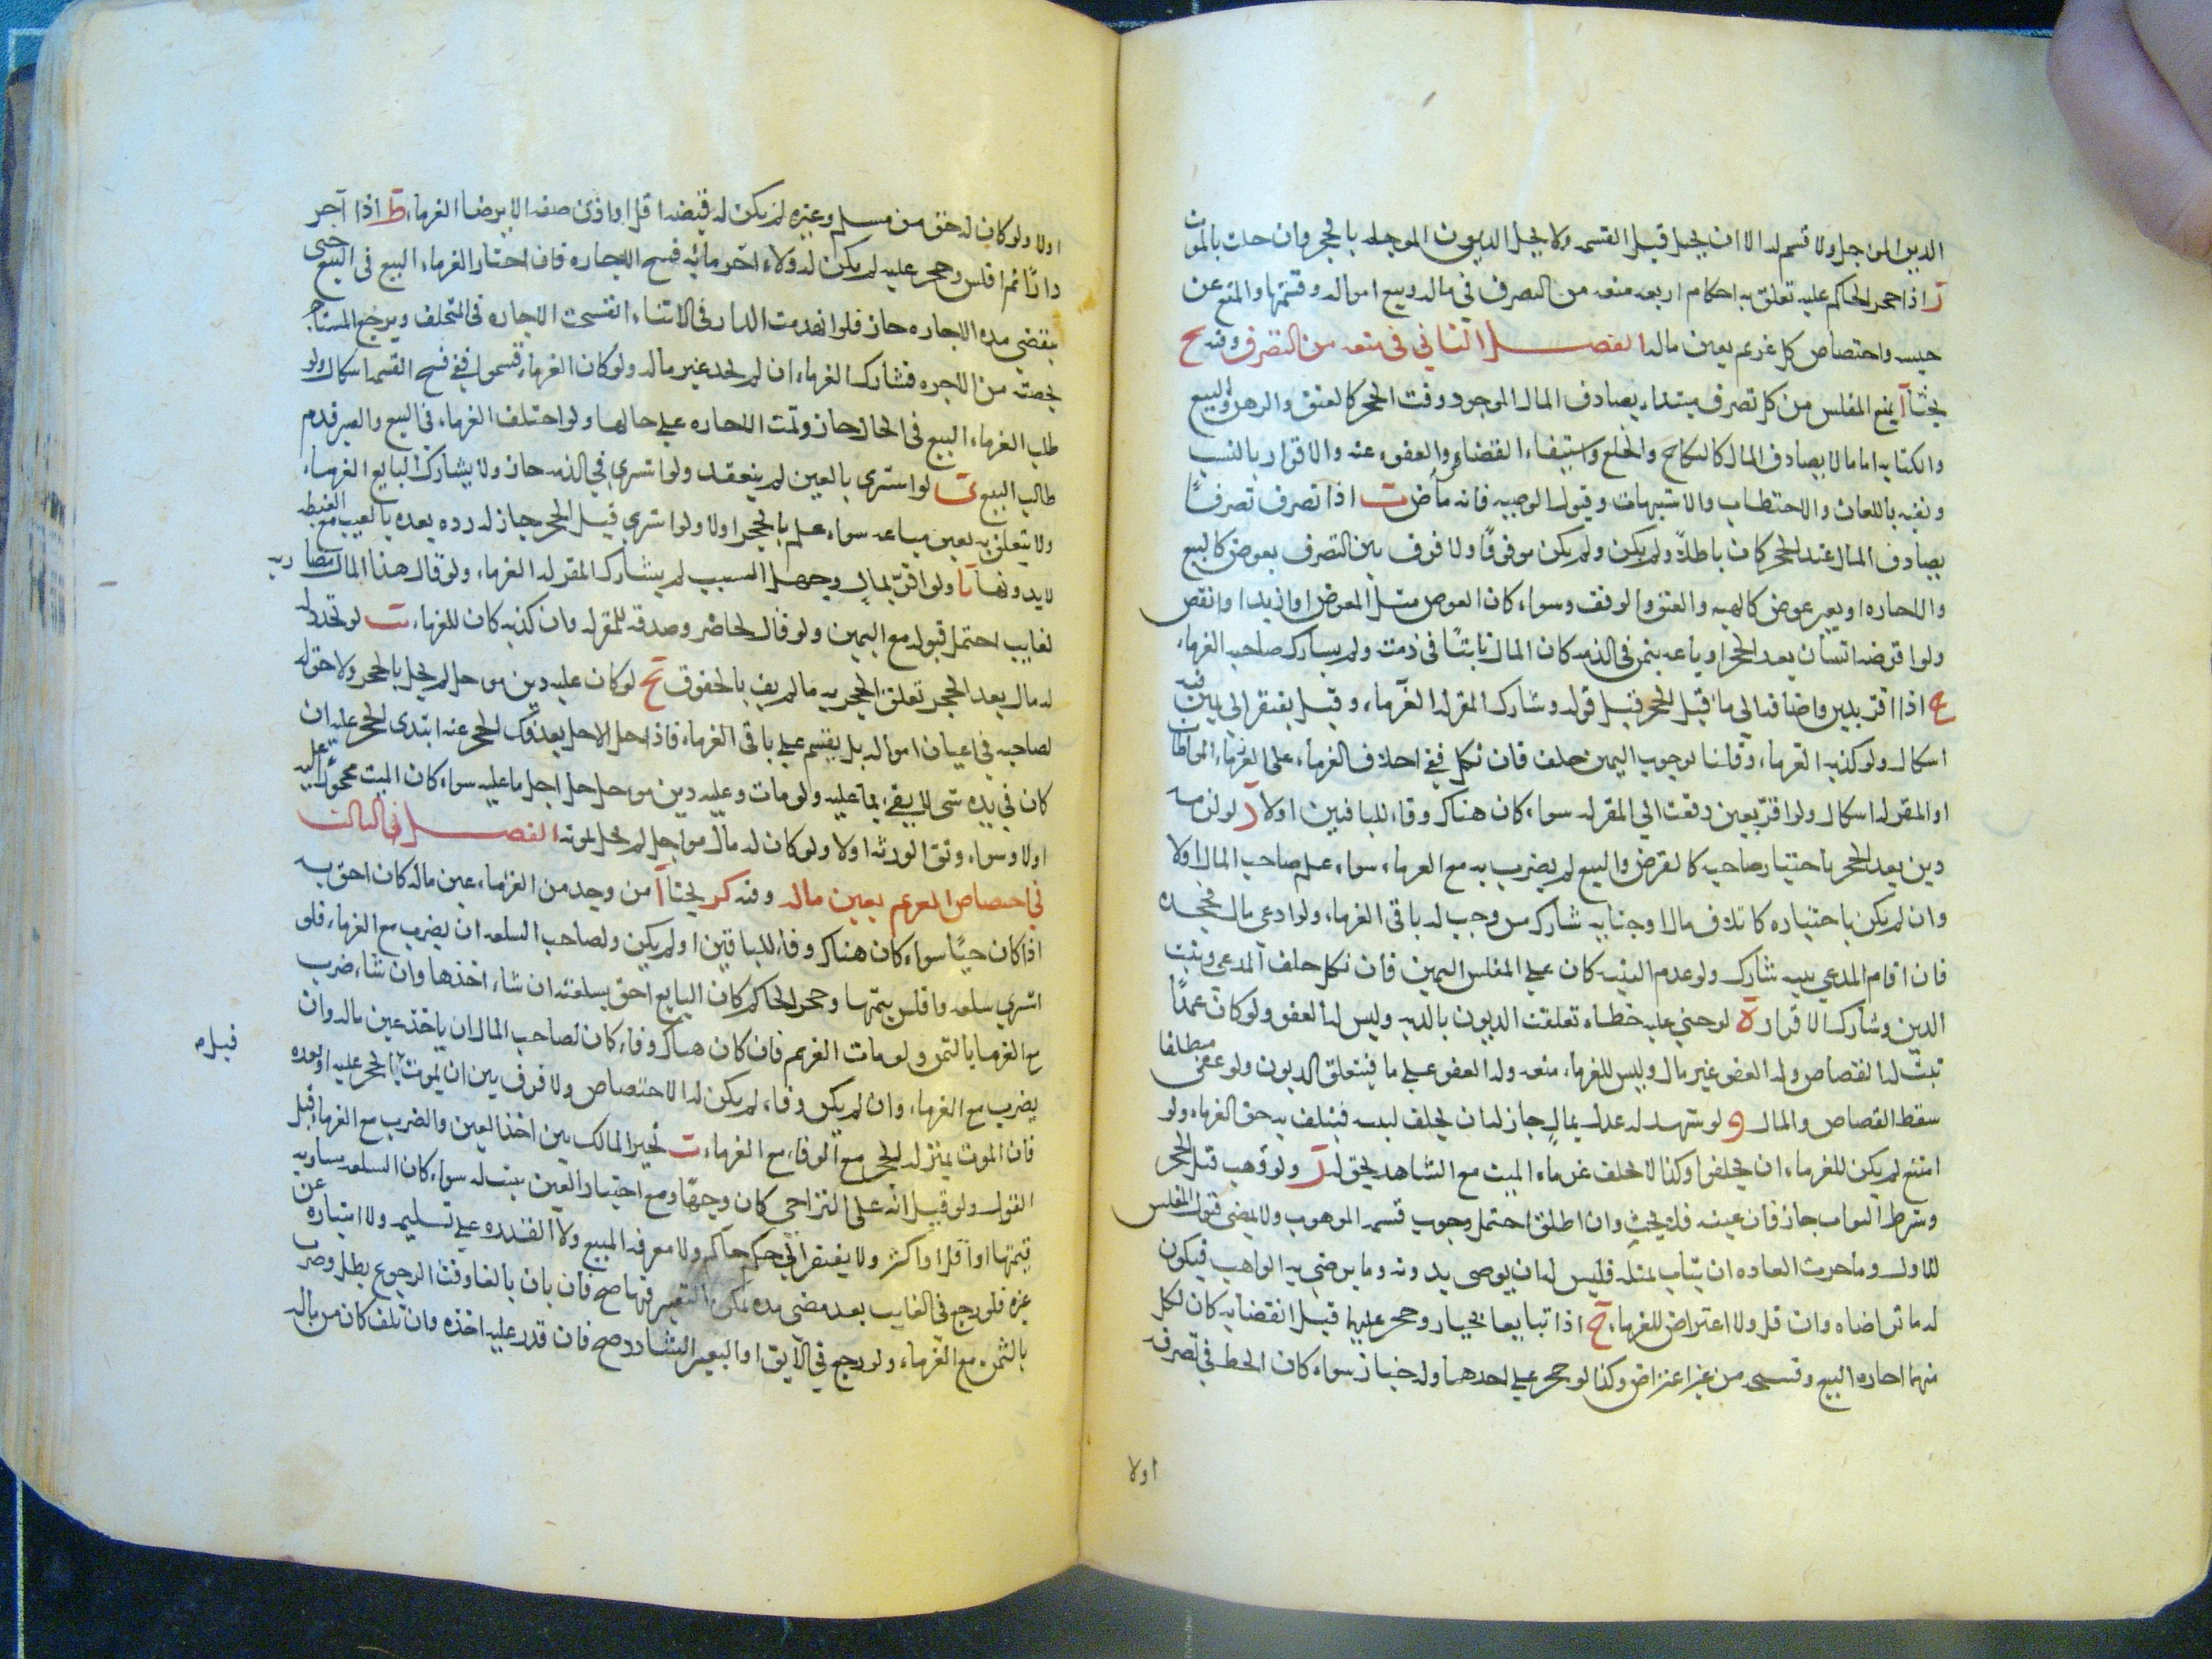 الدين الموجل ولا قسم له الا ان يحل قبل القسمه ولا يحل الديون الموجله بالحجر وان حلت بالموت
ز اذا حجر الحاكم عليه تعلق به احكام اربعه منعه من التصرف في ماله وبيع امواله وقسمتها والمنع عن
حبسه واختصاص كل غريم بعين ماله الفصل الثاني في منعه من التصرف وفيه ح
بحثا آ يمنع المفلس من كل تصرف مبتداء يصادف المال الموجود وقت الحجر كالعتق والرهن والبيع
والكتابه اما ما لا يصادف المال كالنكاح والخلع واستيفاء القصاص والعفو عنه والاقرار بالنسب
ونفيه باللعان والاحتطاب والاستيهاب وقبول الوصيه فانه ماض ب اذا تصرف تصرفًا
يصادف المال عند الحجر كان باطلاً ولم يكن موقوفًا ولا فرق بين التصرف بعوض كالبيع
والاجاره او بغير عوض كالهبه والعتق والوقف وسواء كان العوض مثل المعوض او ازيد او انقص
ولو اقرضه انسان بعد الحجر او باعه بثمن في الذمه كان المال ثابتًا في ذمته ولم يشارك صاحبه الغرماء
ج اذا اقر بدين واضافه الى ما قبل الحجر قبل قوله وشارك المقر له الغرماء وقبل يفتقر الى يمين فيه
اسكال ولو كذبه الغرماء وقلنا بوجوب اليمين حلف فان نكل ففي احلاف الغرماء على المواطاه
او المقر له اسكال ولو اقر بعين دفعت الى المقر له سواء كان هناك وفاء للباقين اولا د لو لزمه
دين بعد الحجر باختيار صاحبه كالقرض والبيع لم يضرب به مع الغرماء سواء علم صاحب المال اولا
وان لم يكن باختياره كاتلاف مال او جنايه شارك من وجب له باقي الغرماء ولو ادعي مال فجحده
فان اقام المدعي بينه شارك ولو عدم البينه كان على المفلس اليمين فان نكل حلف المدعي وثبت
الدين وشارك كالاقرار ه لو جني عليه خطاء تعلقت الديون بالديه وليس له العفو ولو كان عمدًا
ثبت له القصاص وله العفو بغير مال وليس للغرماء منعه وله العفو على مال فيتعلق الديون ولو عفى مطلقا
سقط القصاص والمال و لو شهد له عدل بمال جاز له ان يحلف ليستلف به حق الغرماء ولو
امتنع لم يكن للغرماء ان يحلفوا وكذا لا يحلف غرماء الميت مع الشاهد بحق له ز ولو وهب قبل الحجر
وشرط الثواب جاز فان عينه فلا بحث وان اطلق احتمل وجوب قسمه الموهوب ولا يمضي قبول المفلس
للاول وما جرت العاده ان يثاب بمثله فليس له ان يرضى بدونه وما يرضي به الواهب فيكون
له ما تراضاه وان قل ولا اعتراض للغرماء ح اذا تبايعا بخيار وحجر عليهما قبل انقضايه كان لكل
منهما اجازه البيع وفسخه من غير اعتراض وكذا لو حجر على احدهما وله خيار سواء كان الحظ في تصرفه
اولا
اولا ولو كان له حق من مسلم وغيره لم يكن له قبضه اقل او ادون صفه الا برضا الغرماء ط اذا آجر
دارًا ثم افلس وحجر عليه لم يكن له ولا لاحد غرمائه فسخ الاجاره فان اختار الغرماء البيع حتى
ينقضي مده الاجاره جاز فلو انهدمت الدار في الاثناء انفسخت الاجاره في المتخلف ويرجع المستاجر
بحصته من الاجره فشارك الغرماء ان لم يجد عين ماله ولو كان الغرماء قسموا ففي فسخ القسمه اسكال ولو
طلب الغرماء البيع في الحال جاز وتمت الاجاره على حالها ولو اختلف الغرماء في البيع والصبر قدم
طالب البيع ى لو اشترى بالعين لم ينعقد ولو اشترى في الذمه جاز ولا يشارك البايع الغرماء
ولا يتعلق به بعين متاعه سواء علم بالحجر اولا ولو اشترى قبل الحجر جاز له رده بعده بالعيب مع الغبطه
لا بدونها يا ولو اقر بمال وجهل السبب لم يشارك المقر له الغرماء ولو قال هذا المال مضاربه
لغايب احتمل قبوله مع اليمين ولو قال لحاضر وصدقه للمقر له وان كذبه كان للغرماء يب لو تجدد له
له مال بعد الحجر تعلق الحجر به ما لم يف بالحقوق يج لو كان عليه دين موجل لم يحل بالحجر ولا حق له
لصاحبه في اعيان امواله بل يقسم على باقي الغرماء فاذا حل الاجل بعد فك الحجر عنه ابتدى الحجر عليه ان
كان في يده شى لا يفي بما عليه ولو مات وعليه دين موجل حل اجل ما عليه سواء كان الميت محجورًا عليه
اولا وسواء وثق الورثه اولا ولو كان له مال مواجل لم يحل بموته الفصل الثالث
في اختصاص الغريم بعين ماله وفيه كر بحثا آ من وجد من الغرماء عين ماله كان احق به
اذا كان حيًا سواء كان هناك وفاء للباقين او لم يكن ولصاحب السلعه ان يضرب مع الغرماء فلو
اشترى سلعه وافلس بثمنها وحجر الحاكم كان البايع احق بسلعته ان شاء اخذها وان شاء ضرب
مع الغرما بالثمن ولو مات الغريم فان كان هناك وفاء كان لصاحب المال ان ياخذ عين ماله وان
يضرب مع الغرماء وان لم يكن وفاء لم يكن له الاختصاص ولا فرق بين ان يموت بالحجر عليه او بعده
قبل
فان الموت بمنزله الحجر مع الوفاء مع الغرماء ب تخير المالك بين اخذ العين والضرب مع الغرماء قبل
الفور ولو قيل انه على التراخي كان وجهًا ومع اختيار العين يثبت له سواء كان السلعه مساويه
قيمتها او اقل او اكثر ولا يفتقر الى حكم حاكم ولا معرفه المبيع ولا القدره على تسليمه ولا اشتباره عن
غيره فلو رجع في الغايب بعد مضي مده يمكن التغيير فيها صح فان بان تالفا وقت الرجوع بطل وضرب
بالثمن مع الغرماء ولو رجع في الآبق او البعير الشارد صح فان قدر عليه اخذه وان تلف كان من ماله